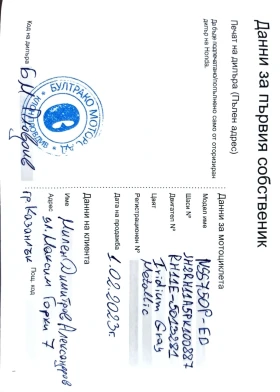 Данни за първия собственик
Печат на дилъра (Пълен адрес)
Да бъде подпечатано/попълнено само от оторизиран дилър на Honda.
БУЛТРАКО МОТОРС АД
Код на дилъра
Данни за мотоциклета
Модел име NC750P-ED
Шаси N° JH2RH11A5PK100887
Двигател N° RH11E-5013281
Цвят Iridium Gray
Metallic
Регистрационен N°
Дата на продажба 1.02.2023г.
Данни на клиента
Име Милен Димитров Александров
Адрес ул. Максим Горки 7
гр. Казанлък Пощ. код